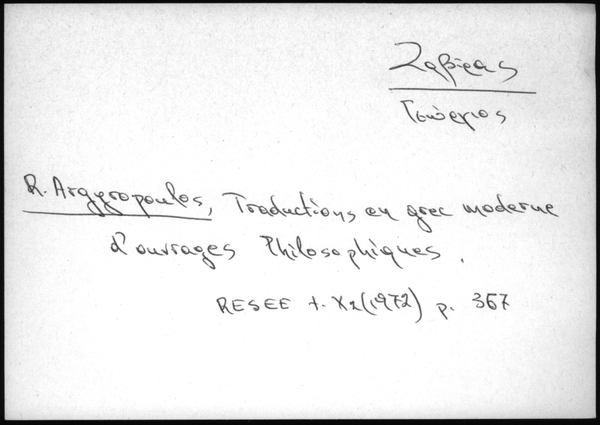 Ζαβίρας
Γεώργιος
R. Argyropoulos, Traductions en grec moderne
d'ouvrages Philosophiques.
RESEE t. X2(1972) p. 367